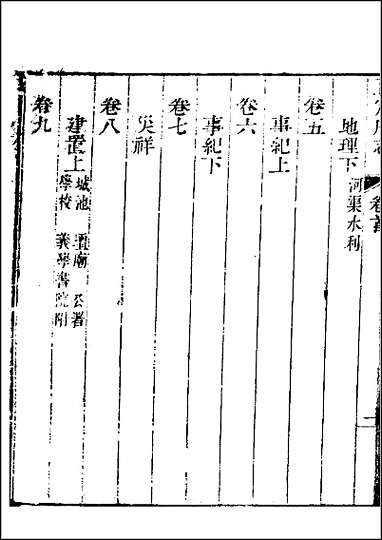 卷首
地理下 河渠水利
卷五
事紀上
卷六
事紀下
卷七
災祥
卷八
建置上 城池 壇廟 公署
學校 義學書院附
卷九